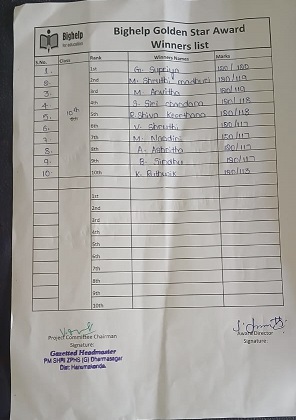 Bighelp
for education
Bighelp Golden Star Award
Winners list
S.No. Class Rank Winners Names Marks
1. 1st G. Supriya 180/180
2. 2nd M. Shruthi madhuri 180/119
3. 3rd M. Anvitha 180/119
4. 10th 4th S. Siri chandana 180/118
5. 5th R. Shiva Keerthana 180/118
6. 6th V. Shruthi 180/117
7. 7th M. Nandini 180/117
8. 8th A. 180/117
9. 9th B. Sindhu 180/117
10. 10th K. Rithwik 180/113
1st
2nd
3rd
4th
5th
6th
7th
8th
9th
10th
Project Committee Chairman Award Director
Signature: Signature:
Gazetted Headmaster
PM SHRI ZPHS (G) Dharmasagar
Dist: Hanumakonda.